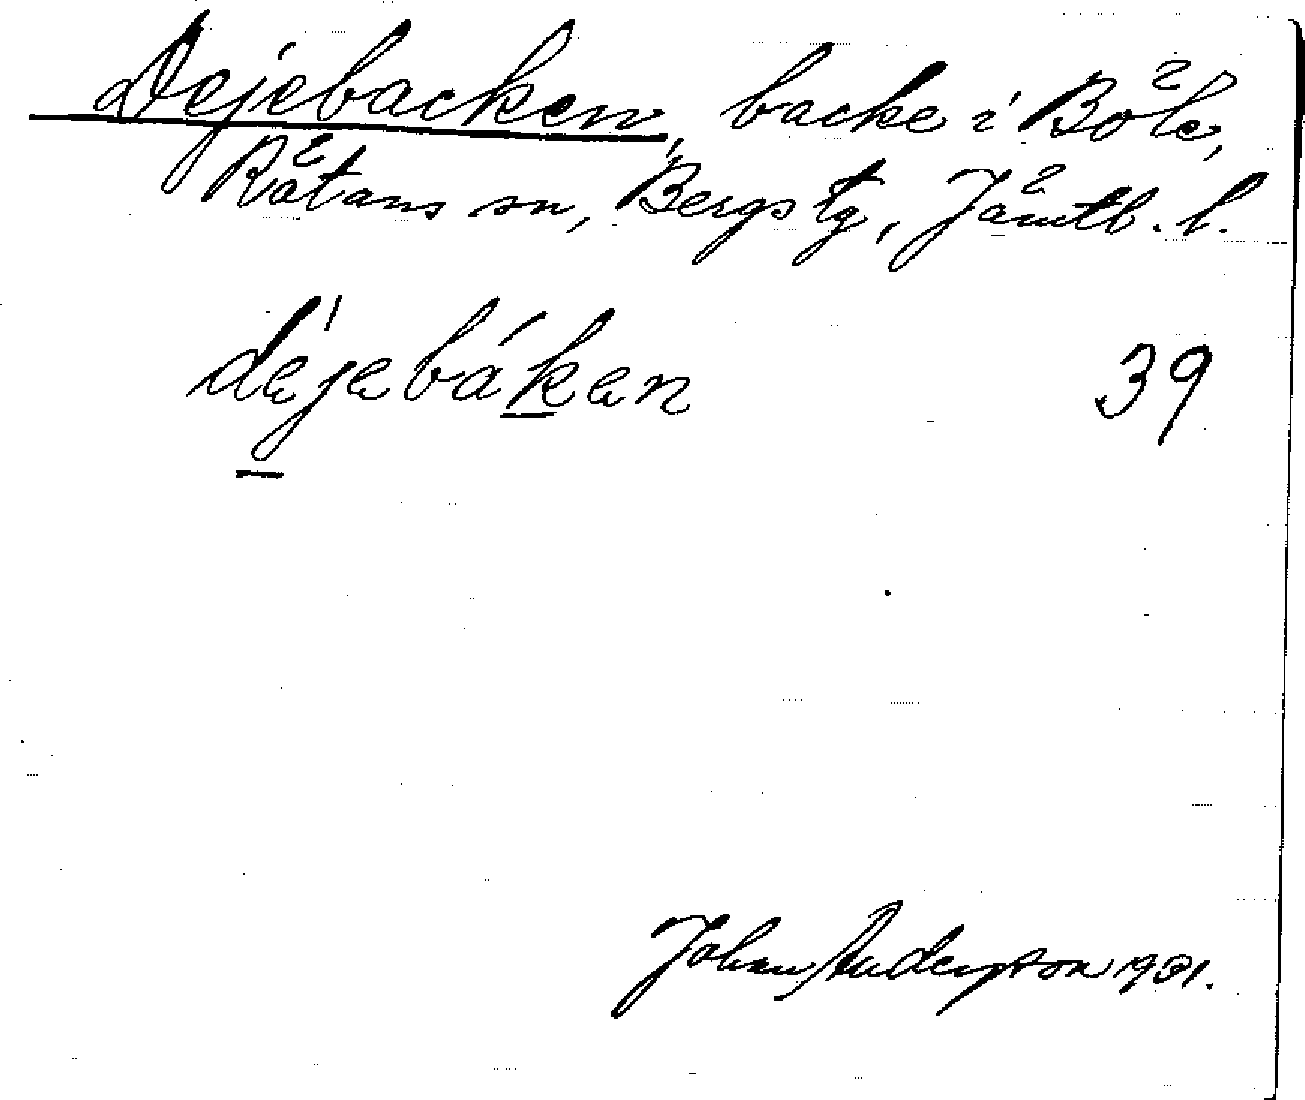 Dejebacken, backe i Böle,
Rätans sn, Bergs tg, Jämtl. l.
dejebáken 39
Johan Anderson 1931.